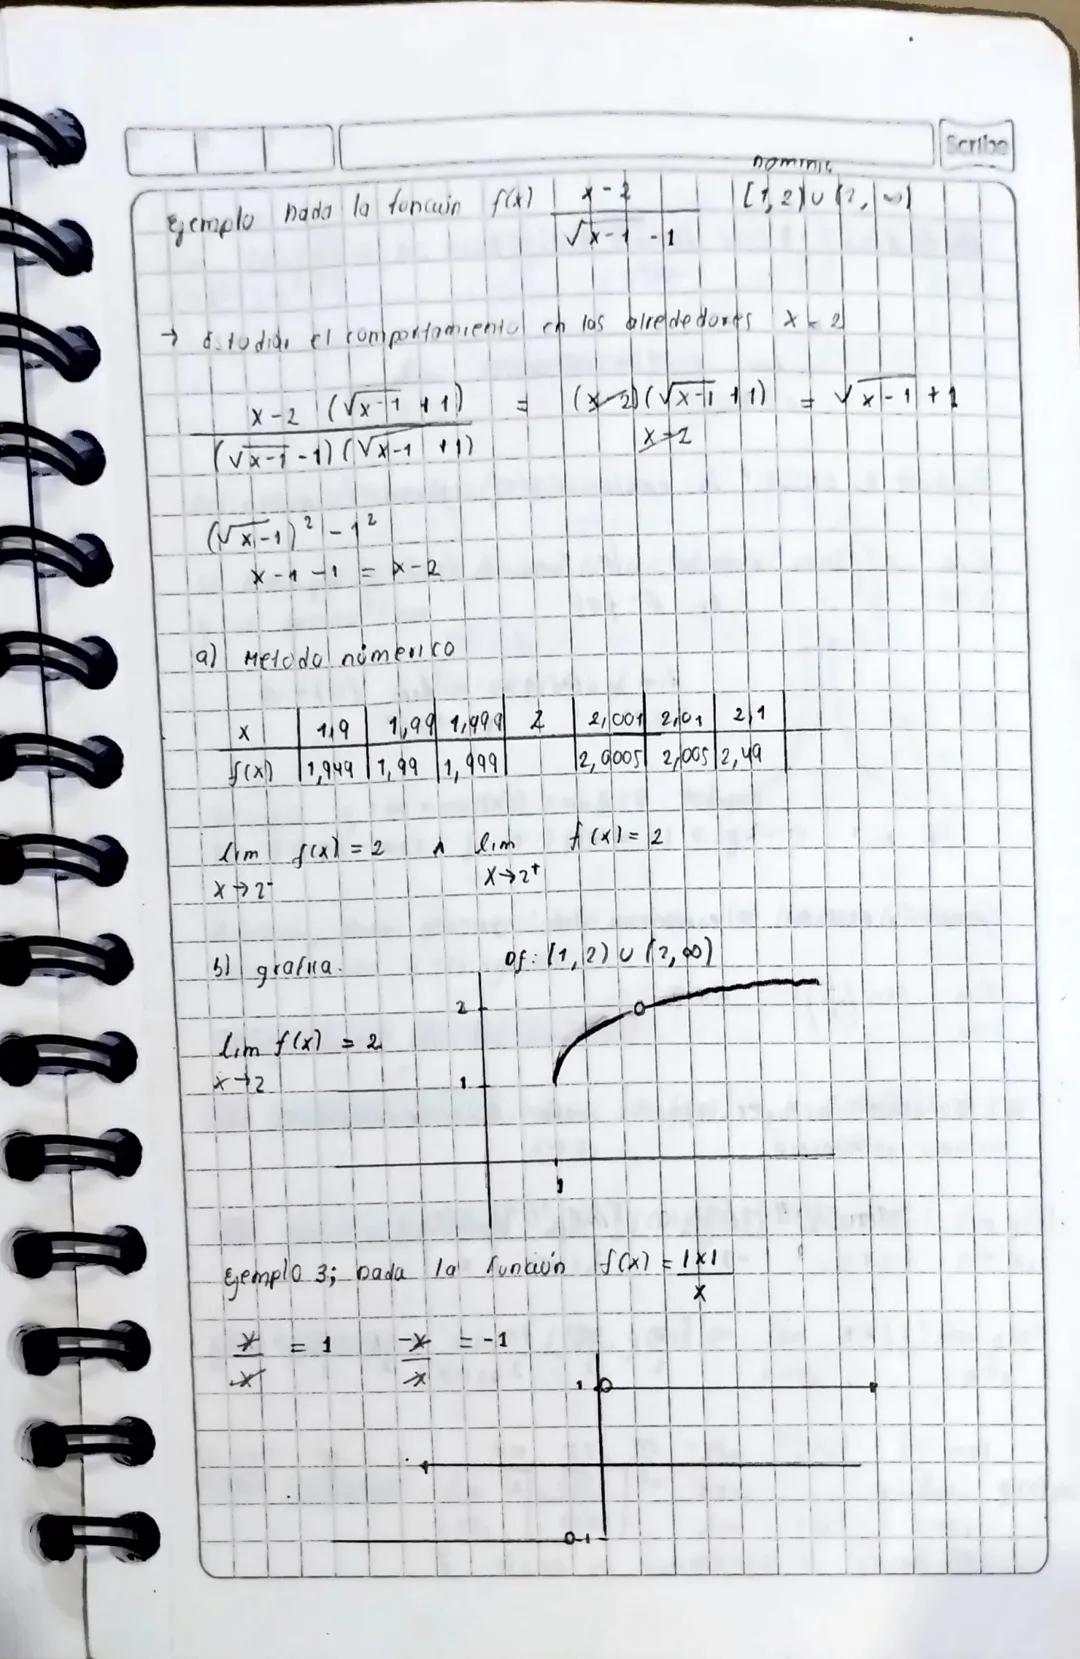 Scribe
Dominio
Ejemplo Dada la función f(x) x-2 / √x-1 -1 [1,2) ∪ (2, ∞)
→ Estudiar el comportamiento en los alrededores x = 2
x-2 (√x-1 + 1) / (√x-1 -1)(√x-1 +1) = (x-2)(√x-1 +1) / x-2 = √x-1 + 1
(√x-1)² - 1²
x-1-1 = x-2
a) Metodo númerico
x | 1,9 | 1,99 | 1,999 | 2 | 2,001 | 2,01 | 2,1
f(x) | 1,949 | 1,99 | 1,999 | | 2,0005 | 2,005 | 2,49
lim f(x) = 2 ∧ lim f(x) = 2
x→2⁻ x→2⁺
b) grafica. Df: [1,2) ∪ (2,∞)
2
lim f(x) = 2
x→2 1
1
Ejemplo 3; Dada la función f(x) = |x| / x
x / x = 1 -x / x = -1
1
-1